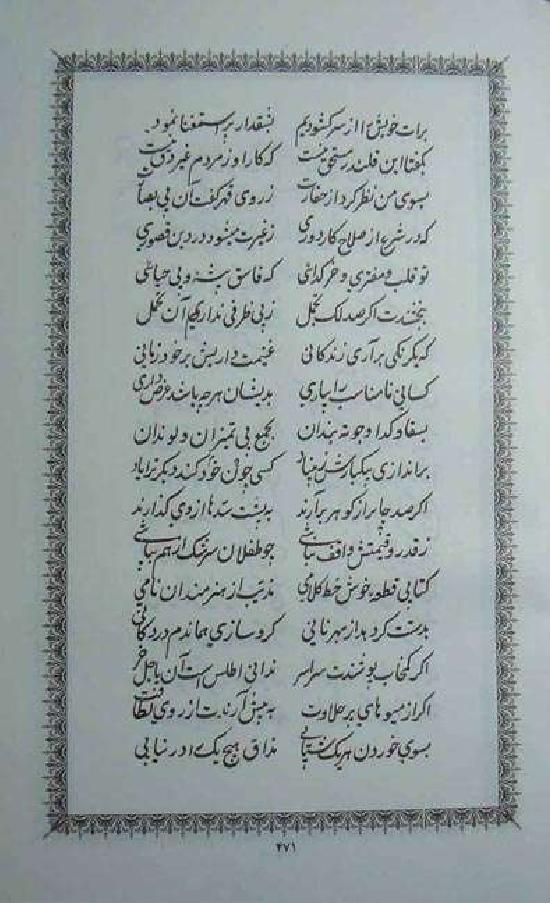 برات خویش را از سر کشودیم بنقدار بر استغنا نمود
بگفتا این قلندر مستحق نیست که کار او ز مردم غیر دق نیست
بسوی من نظر کرد از حقارت ز روی قهر گفت آن بی بصارت
که در شرع از صلاح کار دوری ز غیرت میشود در دین قصوری
تو قلب و مفتری و خر گدائی که فاسق پیشه و بی حیائی
ببخشندت اگر صد لک تجمل ز بی ظرفی نداری آن تحمل
که بکرنکی برآری زندکانی غنیمت دار پس بر خود زبانی
کسانی نامناسب را بیاری بدیشان هر چه باشد عرض داری
بسقا و کدا و جونه بندان بجمع بی تمیزان و لوندان
براندازی بیکبارش کسی چون خود کند دیگر
اگر صد جا براز کوهر برآرند به پیشت از وی گذارند
ز قدر و قیمتش واقف نباشی چو طفلان سرشک از هم بپاشی
کتابی قطعه خوش خط کلامی مذنب از هنرمندان نامی
بدست کرد بداز مهر نایی کرو سازی بماندم در دکانی
اگر کمخاب پوشندت سراسر ندانی اطلس است آن یا جل خر
اگر از میوه های پر حلاوت به پیش آرندت از روی لطافت
بسوی خوردن هر یک شتابی مذاق هیچ یک را در نیابی
۴۷۱